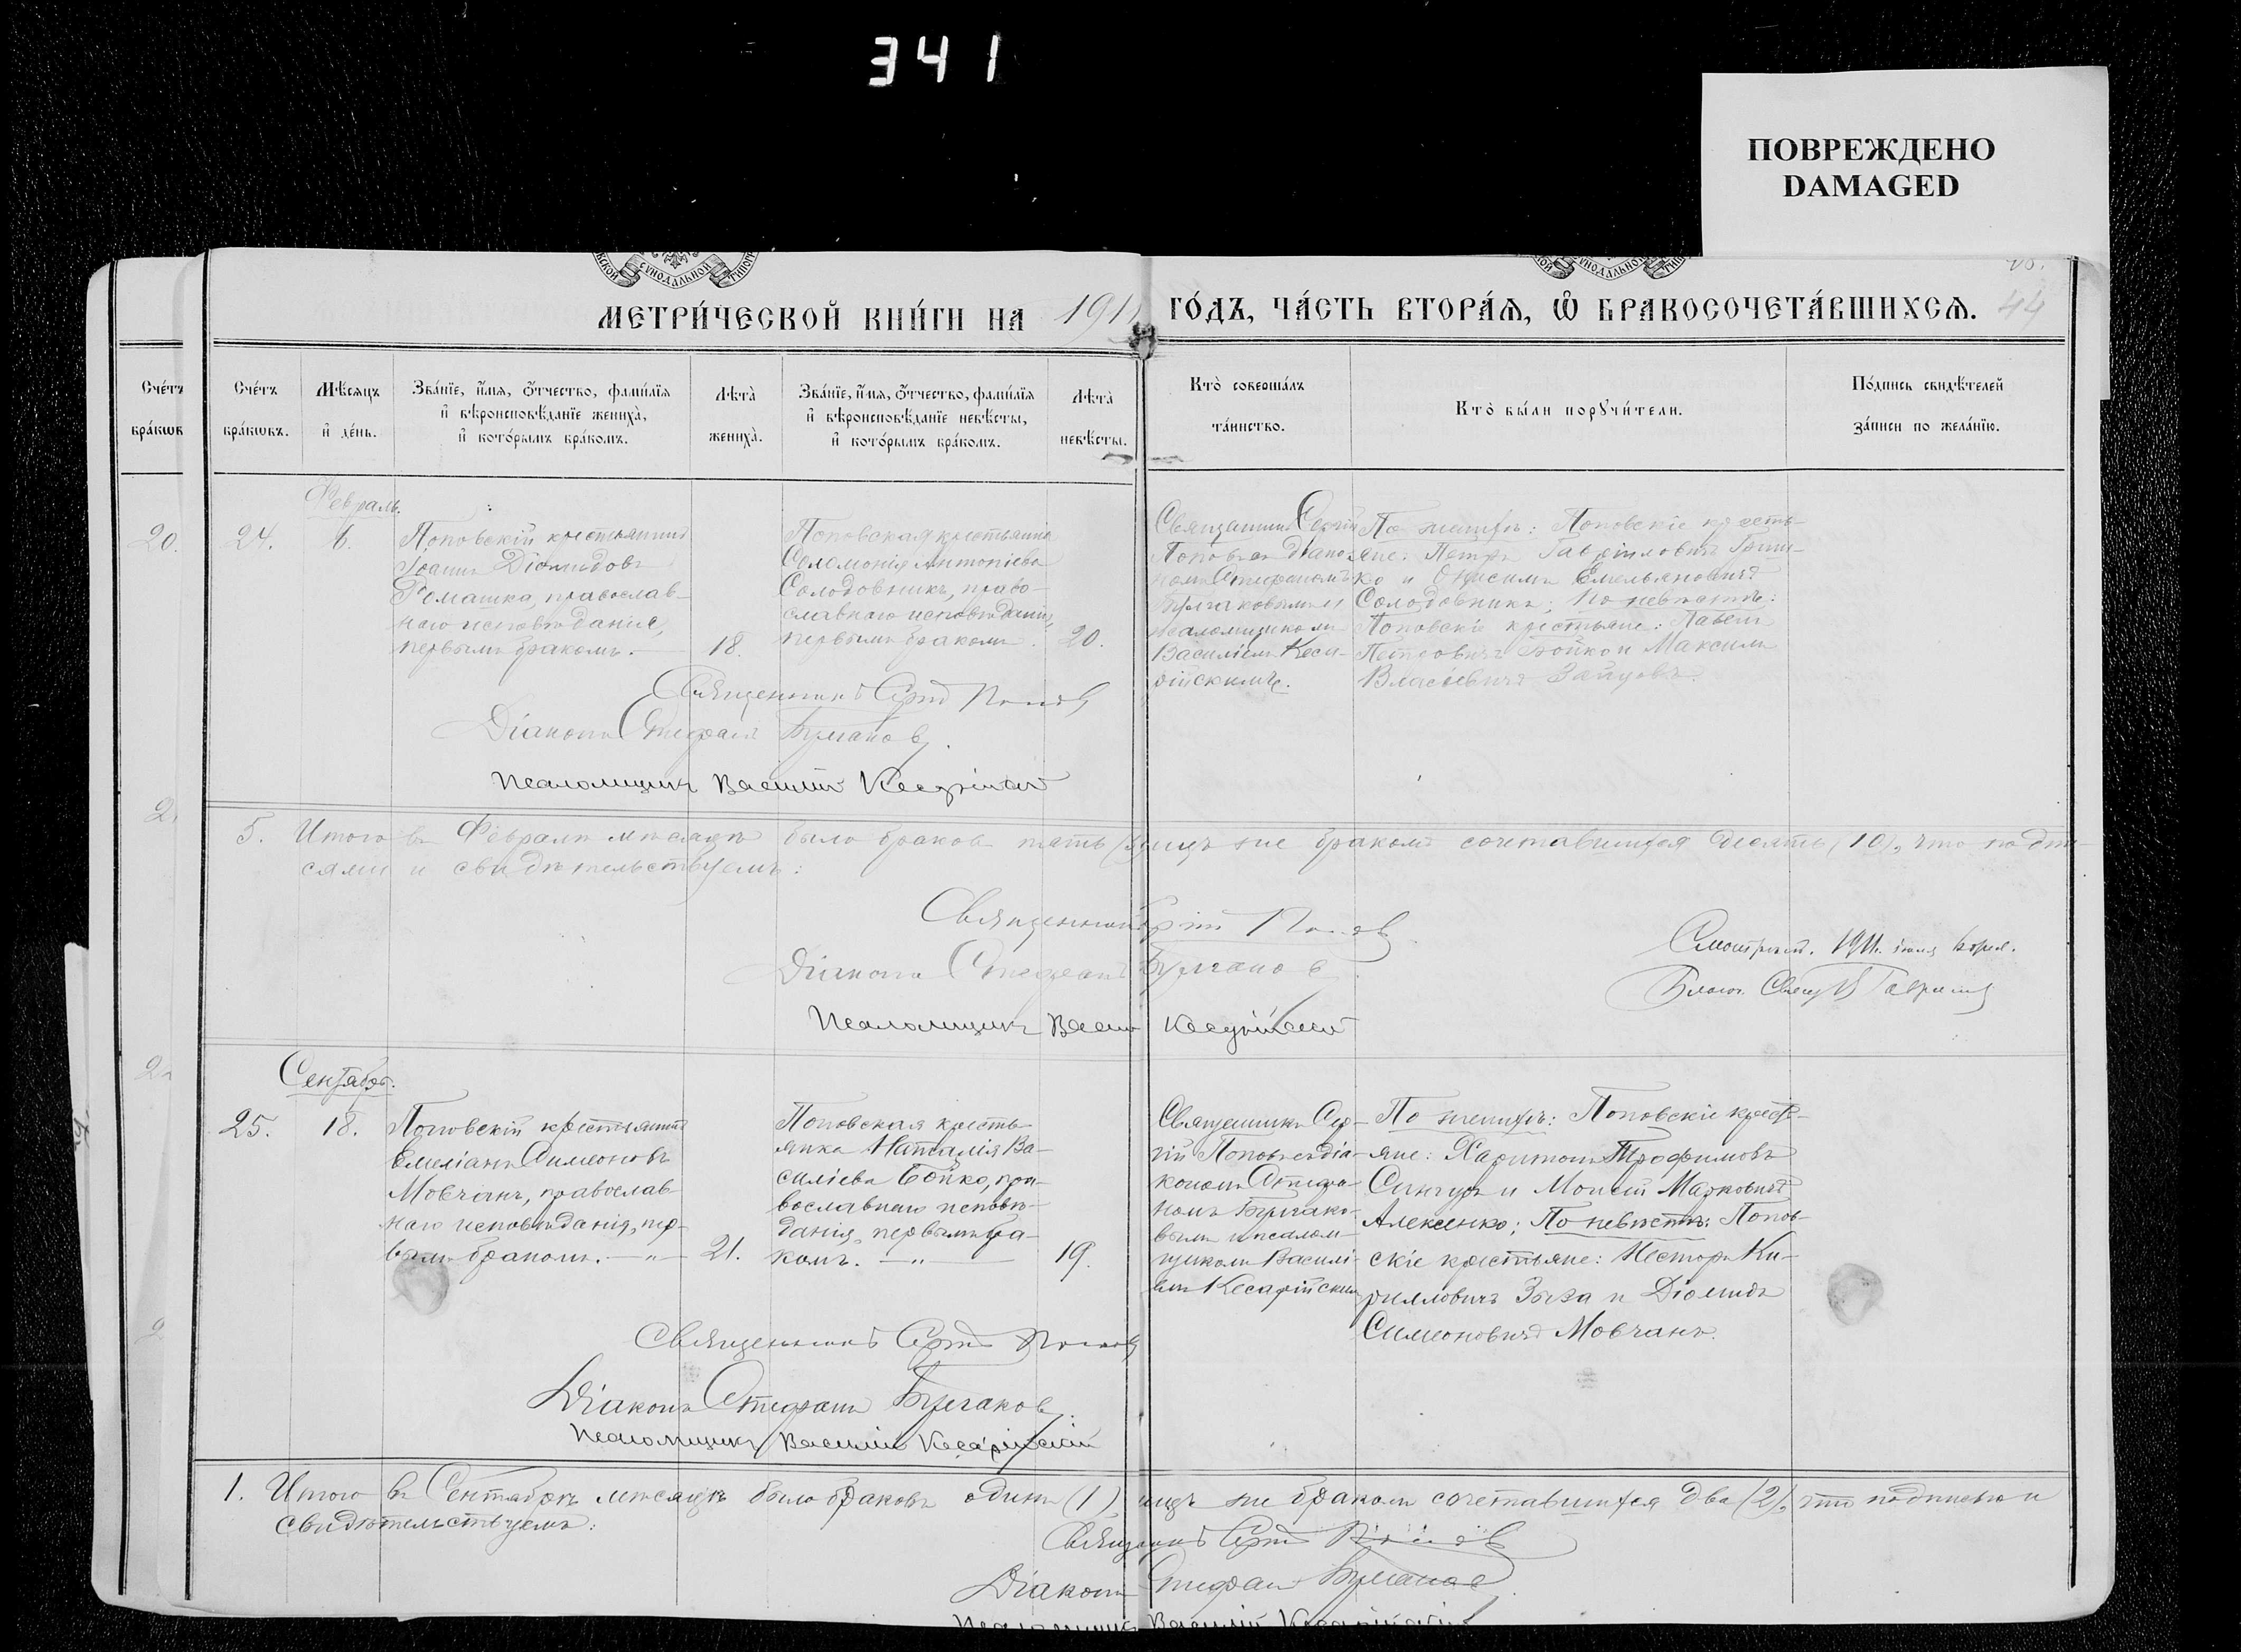 341
ПОВРЕЖДЕНО
DAMAGED
СѴНОДАЛЬНОЙ
МЕТРИ́ЧЕСКОЙ КНИ́ГИ НА 1911 ГО́ДЪ, ЧА́СТЬ ВТОРА́Ѧ, Ѡ҆ БРАКОСОЧЕТА́ВШИХСѦ. 44
Сче́тъ
бра́кѡвъ
Сче́тъ
бра́кѡвъ.
Мѣ́сяцъ
и҆ де́нь.
Зва́нїе, и҆́мя, ѻ҆́тчество, фами́лїя
и҆ вѣроисповѣ́данїе жениха̀,
и҆ кото́рымъ бра́комъ.
Лѣта̀
жениха̀.
Зва́нїе, и҆́мя, ѻ҆́тчество, фами́лїя
и҆ вѣроисповѣ́данїе невѣ́сты,
и҆ кото́рымъ бра́комъ.
Лѣта̀
невѣ́сты.
Кто̀ соверша́лъ
та́инство.
Кто̀ бы́ли порꙋчи́тели.
По́дпись свидѣ́телей
за́писи по жела́нїю.
Февраль.
20.
24.
6.
Поповскій крестьянинъ
Іоаннъ Діомидовъ
Ромашка, православ-
наго исповѣданія,
первымъ бракомъ.
18.
Поповская крестьянка
Соломонія Антоніева
Солодовникъ, право-
славнаго исповѣданія,
первымъ бракомъ.
20.
Священникъ Сергій
Поповъ съ діако-
номъ Стефаномъ
Булгаковымъ и
псаломщикомъ
Василіемъ Кеса-
рійскимъ.
По женихѣ: Поповскіе кресть-
яне: Петръ Гавріиловичъ Гриш-
ко и Онисимъ Емельяновичъ
Солодовникъ; По невѣстѣ:
Поповскіе крестьяне: Павелъ
Петровичъ Бойко и Максимъ
Власіевичъ Зайцовъ.
Священникъ Сергій Поповъ
Діаконъ Стефанъ Булгаковъ.
Псаломщикъ Василій Кесарійскій
5. Итого въ Февралѣ мѣсяцѣ было браковъ пять (5), лицъ же бракомъ сочетавшихся десять (10), что подпи-
сями и свидѣтельствуемъ:
Священникъ Сергій Поповъ
Діаконъ Стефанъ Булгаковъ.
Псаломщикъ Васил Кесарійскій
Смотрѣлъ. 1911 г. іюля
Благоч. Свящ.
Сентябрь.
25.
18.
Поповскій крестьянинъ
Емиліанъ Симеоновъ
Мовчанъ, православ-
наго исповѣданія, пер-
вымъ бракомъ. — „ —
21.
Поповская кресть-
янка Наталія Ва-
силіева Бойко, пра-
вославнаго исповѣ-
данія, первымъ бра-
комъ. — „ —
19.
Священникъ Сер-
гій Поповъ съ діа-
кономъ Стефа-
номъ Булгако-
вымъ и псалом-
щикомъ Василі-
емъ Кесарійскимъ
По женихѣ: Поповскіе кресть-
яне: Харитонъ Трофимовъ
Сингуръ и Моисей Марковичъ
Алексенко; По невѣстѣ: Попов-
скіе крестьяне: Несторъ Ки-
рилловичъ Зыза и Діомидъ
Симеоновичъ Мовчанъ.
Священникъ Сергій Поповъ
Діаконъ Стефанъ Булгаковъ.
Псаломщикъ Василій Кесарійскій
1. Итого въ Сентябрѣ мѣсяцѣ было браковъ одинъ (1), лицъ же бракомъ сочетавшихся два (2), что подписью и
свидѣтельствуемъ:
Священникъ Сергій Поповъ
Діаконъ Стефанъ Булгаковъ.
Псаломщикъ Василій Кесарійскій